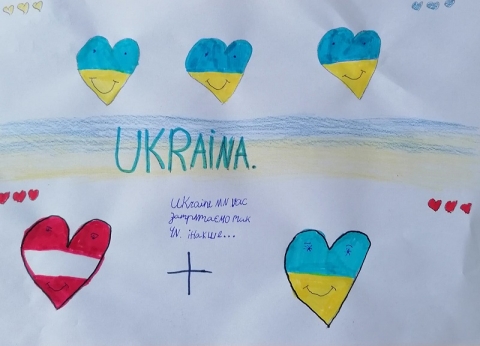 UKRAINA.
Ukraine ми вас
запрятаємо так
чи інакше...